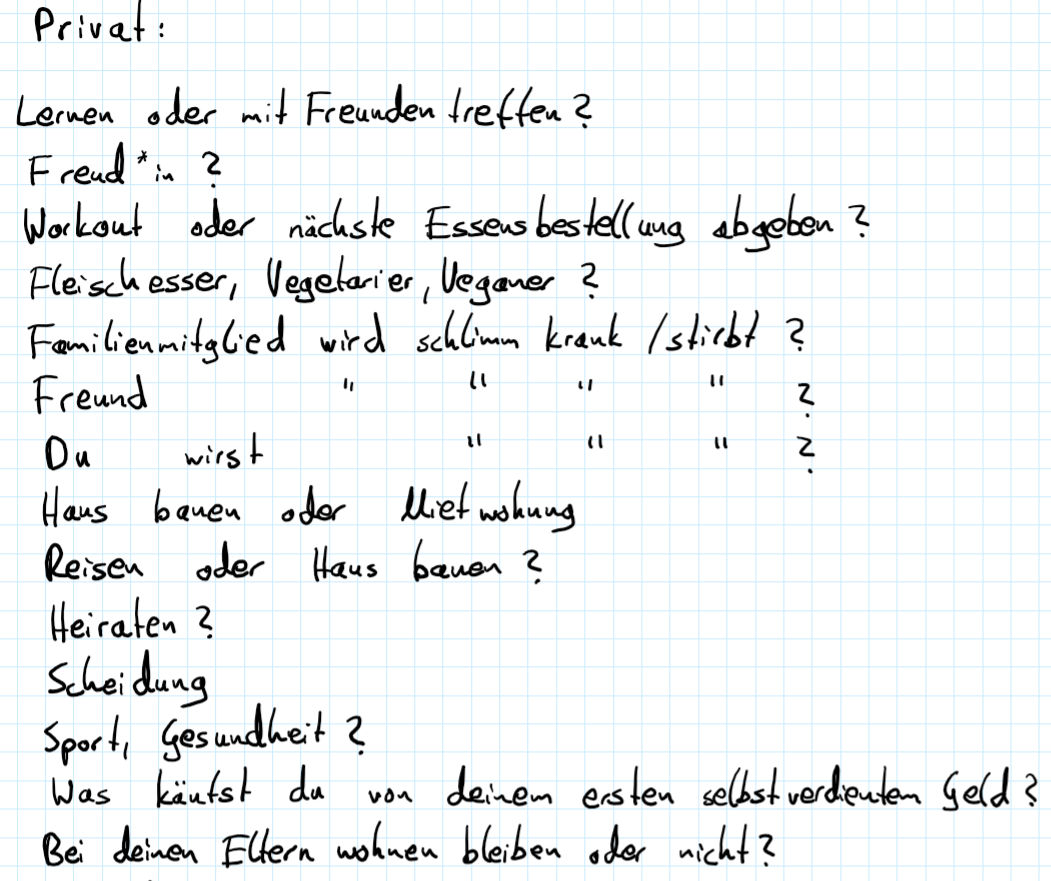 Privat:
Lernen oder mit Freunden treffen?
Freud*in ?
Workout oder nächste Essensbestellung abgeben?
Fleischesser, Vegetarier, Veganer ?
Familienmitglied wird schlimm krank /stirbt ?
Freund " " " " ?
Du wirst " " " ?
Haus bauen oder Mietwohung
Reisen oder Haus bauen ?
Heiraten ?
Scheidung
Sport, Gesundheit ?
Was käufst du von deinem ersten selbstverdientem Geld ?
Bei deinen Eltern wohnen bleiben oder nicht?